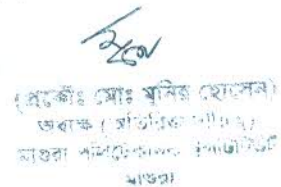 (প্রকৌঃ মোঃ মুনির হোসেন)
অধ্যক্ষ (অতিরিক্ত দায়িত্ব)
মাগুরা পলিটেকনিক ইনস্টিটিউট
মাগুরা